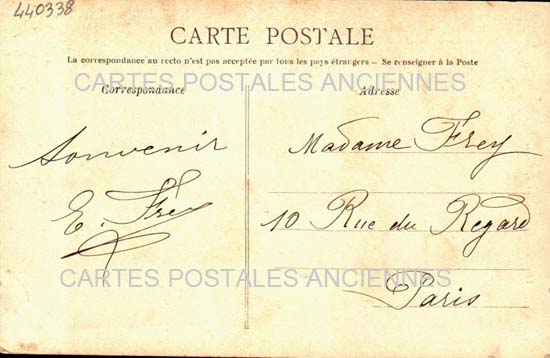 440338
CARTE POSTALE
La correspondance au recto n'est pas acceptée par tous les pays étrangers — Se renseigner à la Poste
CARTES POSTALES ANCIENNES
Correspondance
Adresse
Souvenir
E. Frey
Madame Frey
10 Rue du Regard
Paris
CARTES POSTALES ANCIENNES